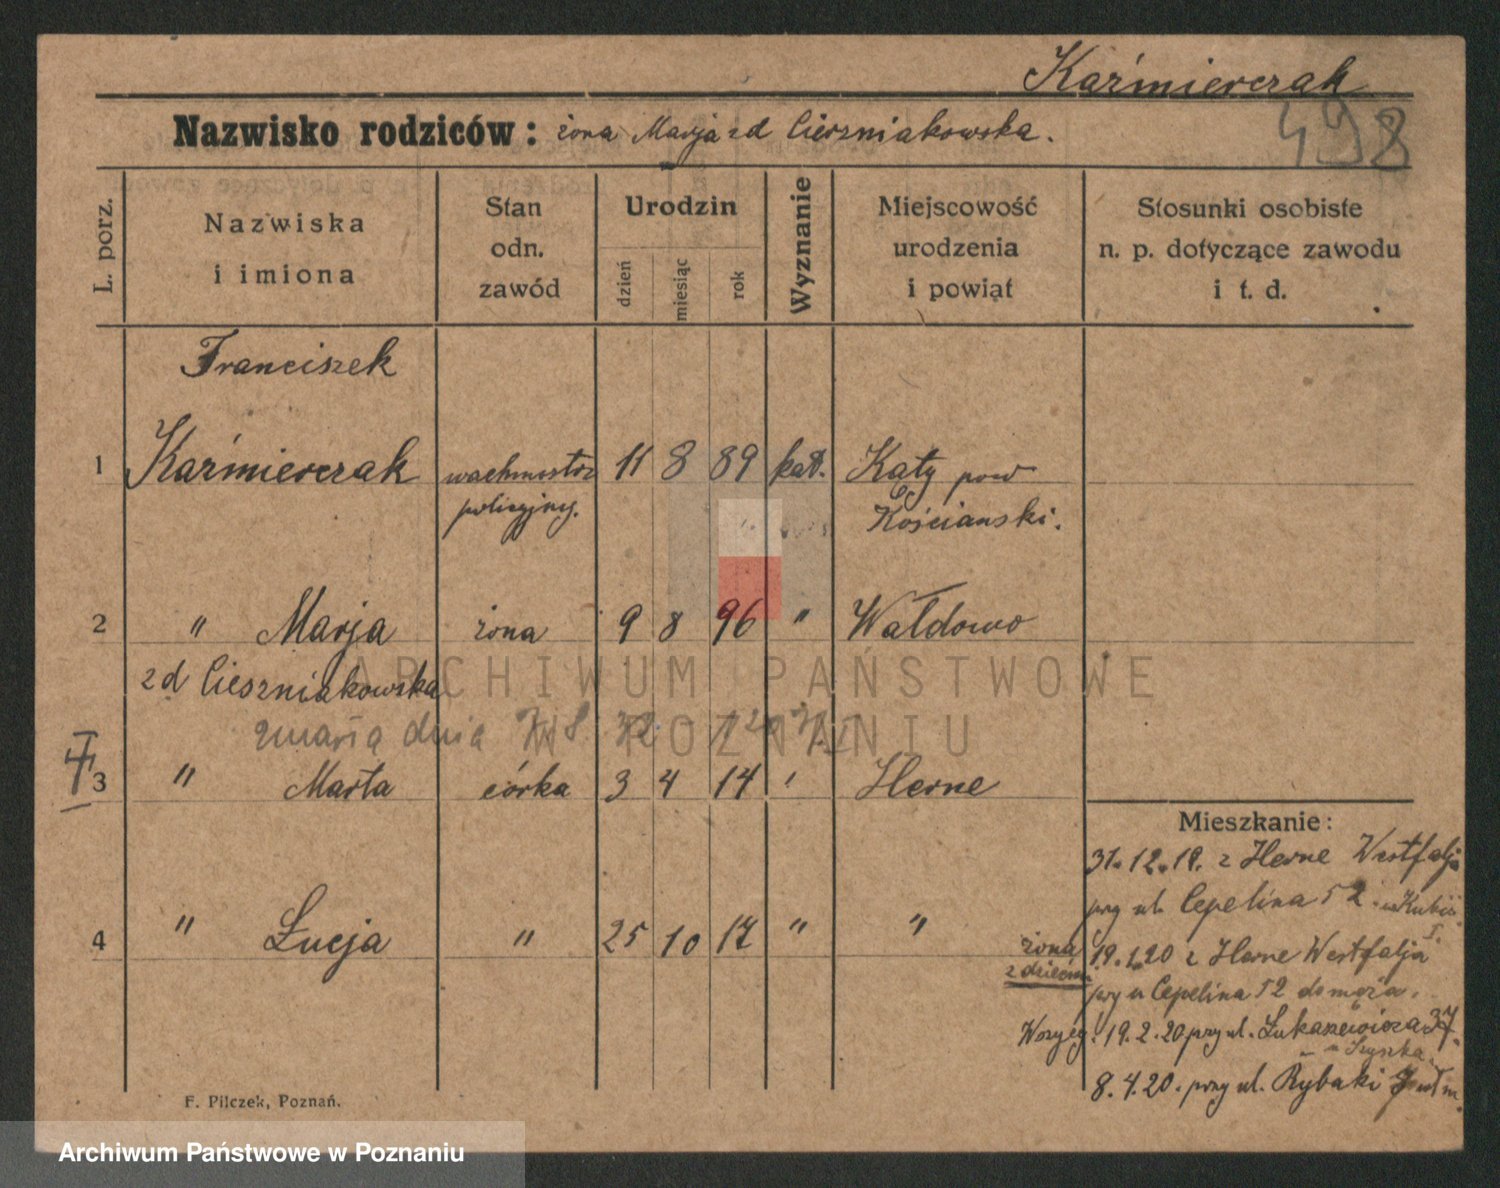 Kaźmierczak
498
Nazwisko rodziców: żona Marja zd Cieszniakowska.
L. porz.
Nazwiska i imiona
Stan odn. zawód
Urodzin
dzień miesiąc rok
Wyznanie
Miejscowość urodzenia i powiat
Stosunki osobiste n. p. dotyczące zawodu i t. d.
Franciszek
1 Kaźmierczak wachmostrz 11 8 89 kat. Kąty pow
policyjny. Kościanski.
2 " Marja żona 9 8 96 " Wałdowo
zd Cieszniakowska
zmarła dnia
3 " Marta córka 3 4 14 " Herne
Mieszkanie:
31.12.19. z Herne Westfalja
przy ul. Cepelina 52
4 " Łucja " 25 10 17 " "
żona z dziećmi 19.1.20 z Herne Westfalja
przy u Cepelina 52 do męża.
Wszyscy! 19.2.20 przy ul. Łukaszewicza 37.
u Szyszka.
8.4.20. przy ul. Rybaki
F. Pilczek, Poznań.
ARCHIWUM PAŃSTWOWE
W POZNANIU
Archiwum Państwowe w Poznaniu